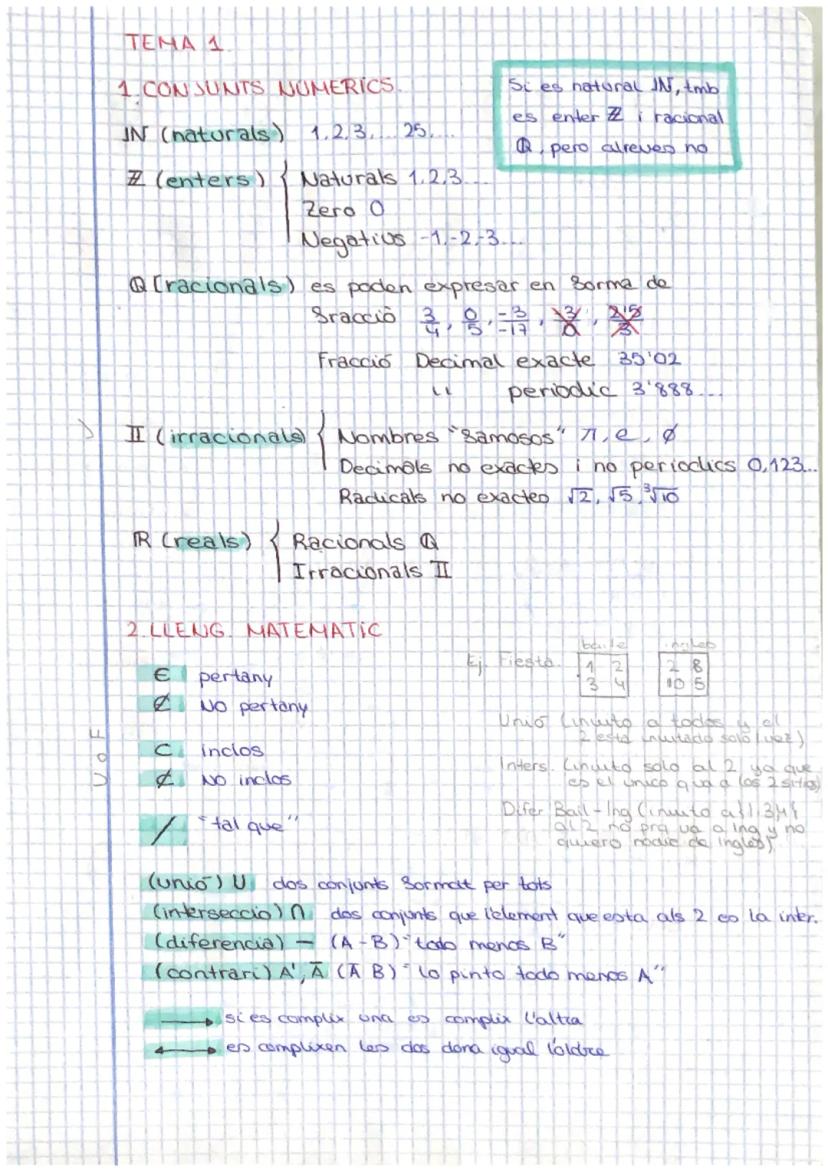 TEMA 1.
1. CONJUNTS NUMERICS.
Si es natural ℕ, tmb
es enter ℤ i racional
ℚ, pero alreves no
ℕ (naturals) 1,2,3,... 25,...
ℤ (enters) { Naturals 1,2,3...
Zero 0
Negatius -1,-2,-3...
ℚ (racionals) es poden expresar en forma de
fracció 3/4, 0/5, -3/-17, -3/0, 2'5/3
Fracció Decimal exacte 35'02
" periodic 3'888...
𝕀 (irracionals) { Nombres "famosos" π, e, ø
Decimals no exactes i no periodics 0,123...
Radicals no exactes √2, √5, ³√10
ℝ (reals) { Racionals ℚ
Irracionals 𝕀
2. LLENG. MATEMATIC
Ej. Fiesta. baile ingles
1 2 2 8
3 4 10 5
∈ pertany
∉ NO pertany
Unió (invito a todos y el
2 esta invitado solo 1 vez)
V o F
⊂ inclos
⊄ NO inclos
Inters. (invito solo al 2 ya que
es el unico q va a los 2 sitios)
/ "tal que"
Difer Bail-Ing (invito a {1,3,4}
al 2 no prq va a ing y no
quiero nadie de ingles)
(unió) U dos conjunts format per tots
(intersecció) ∩ dos conjunts que l'element que esta als 2 es la inter.
(diferencia) - (A-B) "todo menos B"
(contrari) A', Ā (Ā B) "lo pinto todo menos A"
→ si es complix una es complix l'altra
↔ es complixen les dos dona igual l'oldre